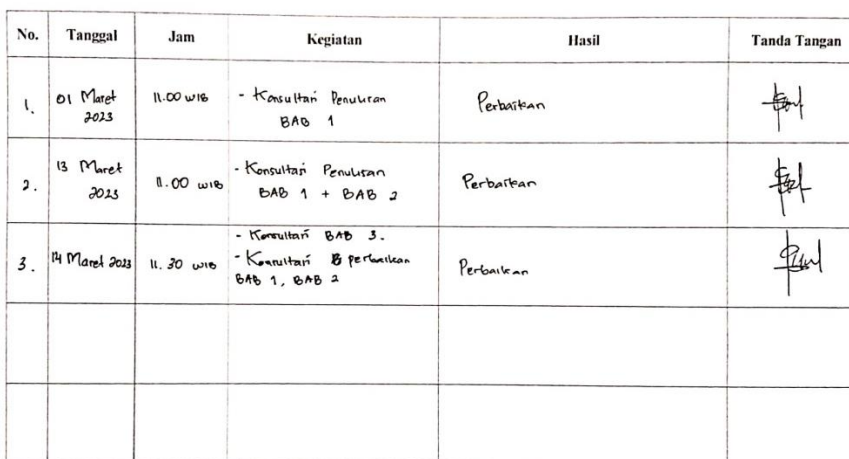 No. Tanggal Jam Kegiatan Hasil Tanda Tangan
1. 01 Maret 2023 11.00 WIB - Konsultasi Penulisan BAB 1 Perbaikan
2. 13 Maret 2023 11.00 WIB - Konsultasi Penulisan BAB 1 + BAB 2 Perbaikan
3. 14 Maret 2023 11.30 WIB - Konsultasi BAB 3.
- Konsultasi perbaikan
BAB 1, BAB 2 Perbaikan